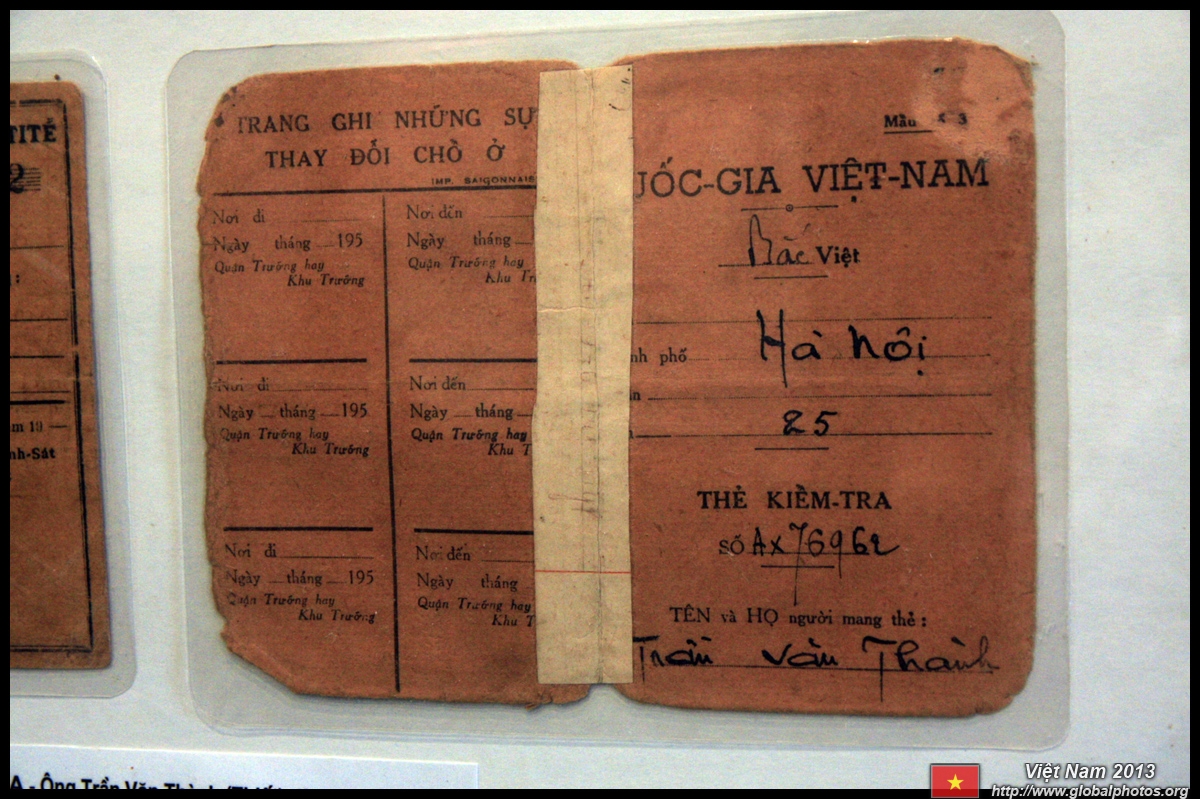 TITÉ
2
:
m 19
nh-Sát
TRANG GHI NHỮNG SỰ
THAY ĐỔI CHỖ Ở
IMP. SAIGONNAIS
Nơi đi
Nơi đến
Ngày tháng 195
Ngày tháng
Quận Trưởng hay
Khu Trưởng
Quận Trưởng hay
Khu Tr
Nơi đi
Nơi đến
Ngày tháng 195
Ngày tháng
Quận Trưởng hay
Khu Trưởng
Quận Trưởng hay
Khu T
Nơi đi
Nơi đến
Ngày tháng 195
Ngày tháng
Quận Trưởng hay
Khu Trưởng
Quận Trưởng hay
Khu T
Mẫu 3
UỐC-GIA VIỆT-NAM
Bắc Việt
nh phố Hà Nội
n
25
THẺ KIỂM-TRA
SỐ AX76962
TÊN và HỌ người mang thẻ :
Trần Văn Thành
A - Ông Trần Văn Thành
Việt Nam 2013
http://www.globalphotos.org